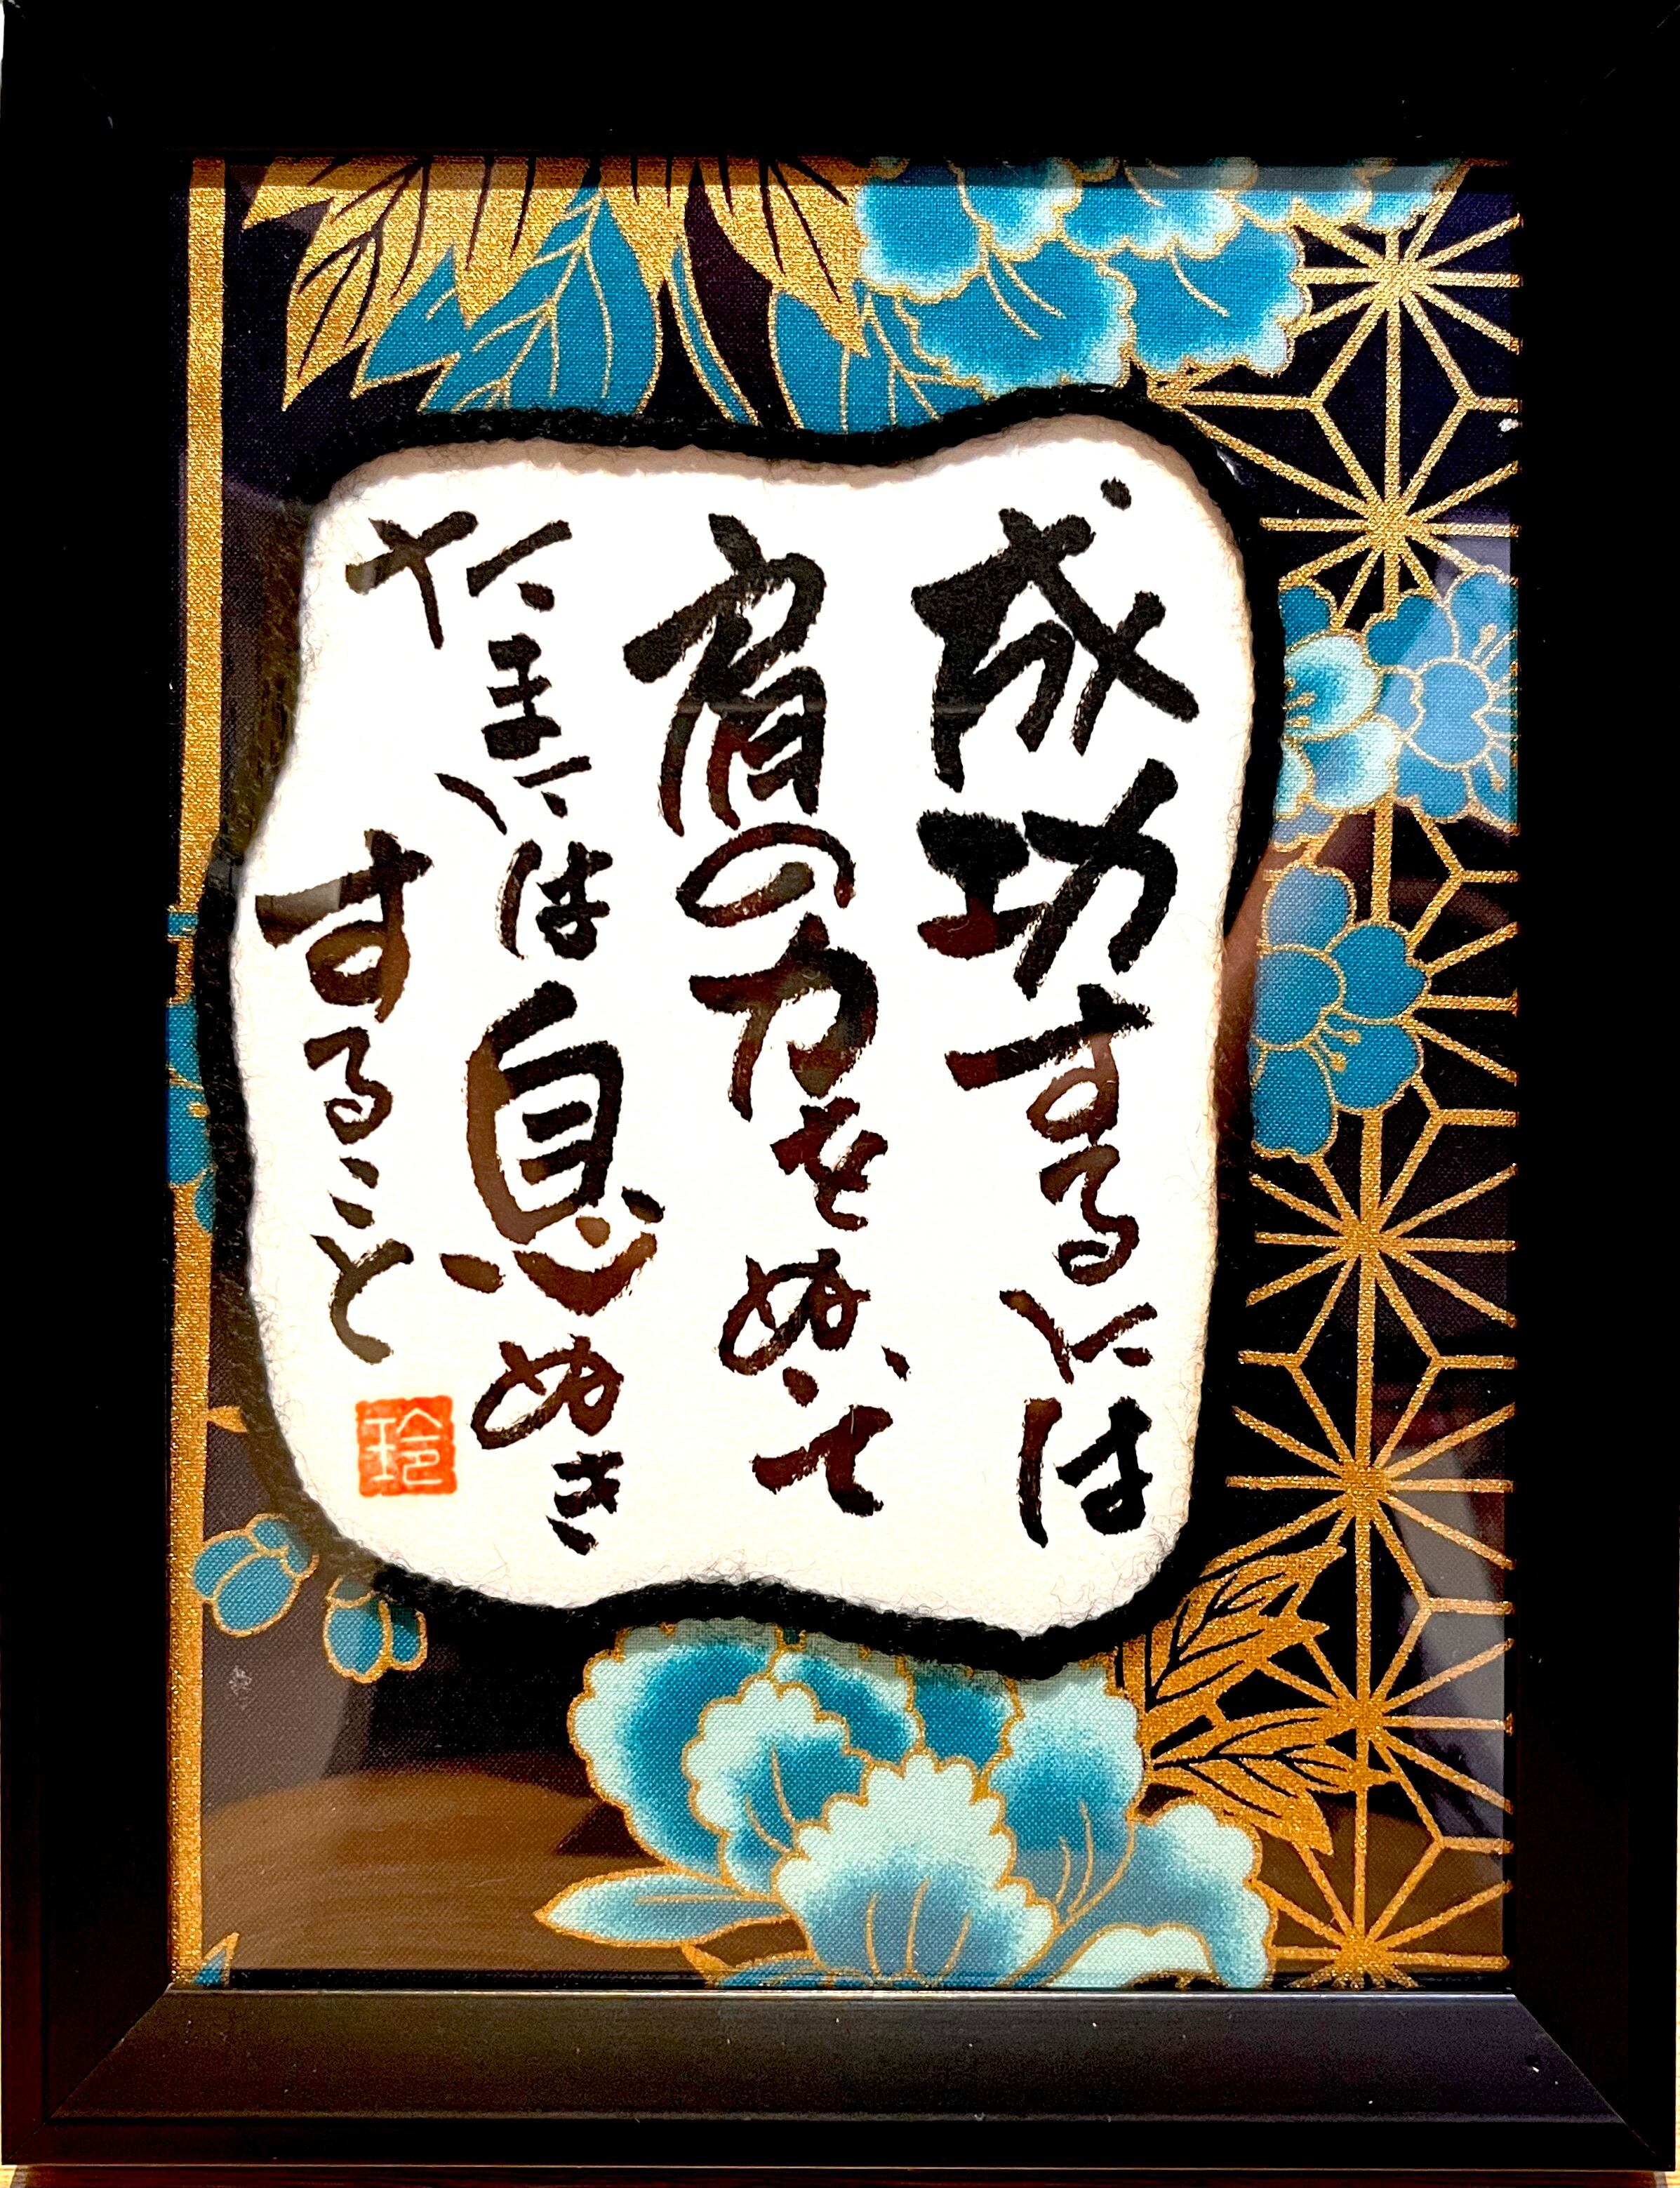 成功するには
肩の力をぬいて
たまには息ぬき
すること
玲